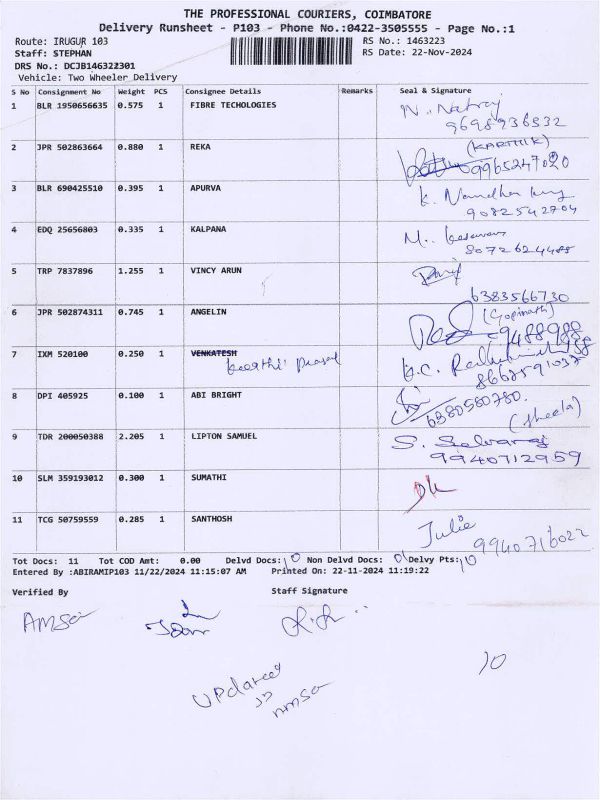 THE PROFESSIONAL COURIERS, COIMBATORE
Delivery Runsheet - P103 - Phone No.:0422-3505555 - Page No.:1
Route: IRUGUR 103 RS No.: 1463223
Staff: STEPHAN RS Date: 22-Nov-2024
DRS No.: DCJB146322301
Vehicle: Two Wheeler Delivery
S No Consignment No Weight PCS Consignee Details Remarks Seal & Signature
1 BLR 1950656635 0.575 1 FIBRE TECHOLOGIES N.. Natraj
9698936532
2 JPR 502863664 0.880 1 REKA (KARTHIK)
9965247020
3 BLR 690425510 0.395 1 APURVA K.
9082542704
4 EDQ 25656803 0.335 1 KALPANA M..
8072624488
5 TRP 7837896 1.255 1 VINCY ARUN
6383566730
6 JPR 502874311 0.745 1 ANGELIN (Gopinath)
7 IXM 520100 0.250 1 VENKATESH K.C.
Keerthi Prasad
8 DPI 405925 0.100 1 ABI BRIGHT 6380580780.
(Sheela)
9 TDR 200050388 2.205 1 LIPTON SAMUEL S. Selvaraj
9940712959
10 SLM 359193012 0.300 1 SUMATHI
11 TCG 50759559 0.285 1 SANTHOSH Julie
9940716022
Tot Docs: 11 Tot COD Amt: 0.00 Delvd Docs: 10 Non Delvd Docs: 01 Delvy Pts: 10
Entered By :ABIRAMIP103 11/22/2024 11:15:07 AM Printed On: 22-11-2024 11:19:22
Verified By Staff Signature
AMSA
10
UPdated
AMSA